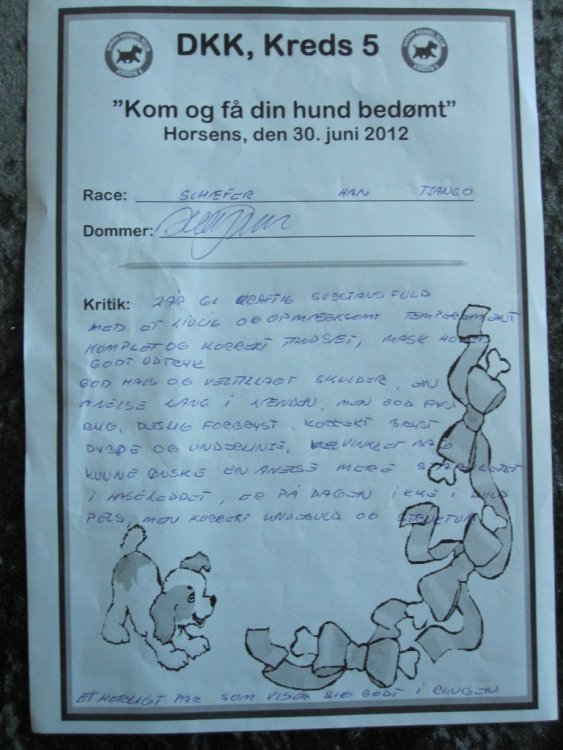 DANSK KENNEL KLUB KREDS 5
DKK, Kreds 5
DANSK KENNEL KLUB KREDS 5
”Kom og få din hund bedømt”
Horsens, den 30. juni 2012
Race: SCHÆFER HAN TJANGO
Dommer:
Kritik: 2 ÅR GL KRAFTIG SUBSTANSFULD
MED ET LIVLIG OG OPMÆRKSOMT TEMPERAMENT
KOMPLET OG KORREKT TANDSÆT, MASK HOVED
GODT UDTRYK
GOD HALS OG VELTILLAGT SKULDER, EN
ANELSE LANG I LÆNDEN, MEN GOD FAST
RYG, DEJLIG FORBRYST, KORREKT BRYST
DYBDE OG UNDERLINIE, VELVINKLET BAG
KUNNE ØNSKE EN ANELSE MERE STABILITET
I HASELEDDET, ER PÅ DAGEN IKKE I FULD
PELS, MEN KORREKT UNDERULD OG STRUKTUR
ET HERLIGT PAR SOM VISER SIG GODT I RINGEN